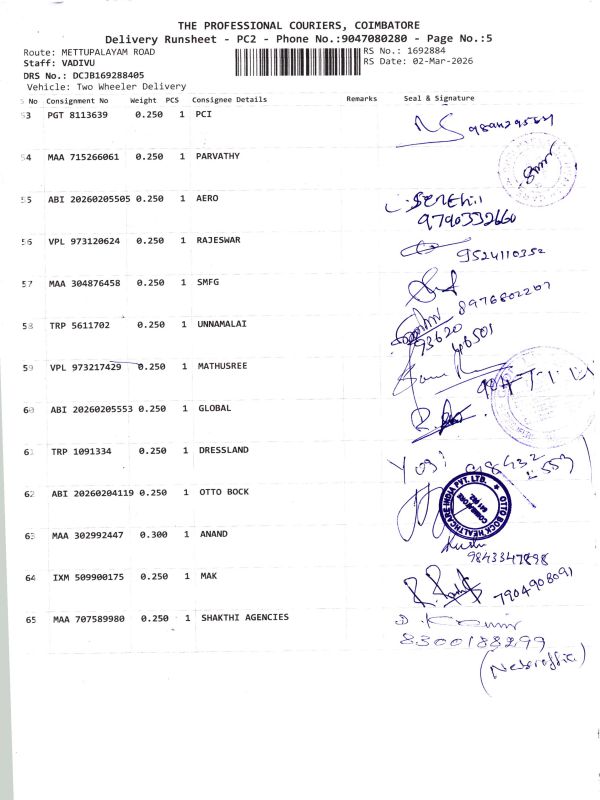 THE PROFESSIONAL COURIERS, COIMBATORE
Delivery Runsheet - PC2 - Phone No.:9047080280 - Page No.:5
Route: METTUPALAYAM ROAD RS No.: 1692884
Staff: VADIVU RS Date: 02-Mar-2026
DRS No.: DCJB169288405
Vehicle: Two Wheeler Delivery
S No Consignment No Weight PCS Consignee Details Remarks Seal & Signature
53 PGT 8113639 0.250 1 PCI
54 MAA 715266061 0.250 1 PARVATHY
55 ABI 20260205505 0.250 1 AERO
9790332660
56 VPL 973120624 0.250 1 RAJESWAR
9524110352
57 MAA 304876458 0.250 1 SMFG
8976802207
58 TRP 5611702 0.250 1 UNNAMALAI
93620
46501
59 VPL 973217429 0.250 1 MATHUSREE
60 ABI 20260205553 0.250 1 GLOBAL
61 TRP 1091334 0.250 1 DRESSLAND
Yogi
62 ABI 20260204119 0.250 1 OTTO BOCK
OTTO BOCK HEALTHCARE INDIA PVT. LTD.
COIMBATORE
63 MAA 302992447 0.300 1 ANAND
9843347898
64 IXM 509900175 0.250 1 MAK
7904908091
65 MAA 707589980 0.250 1 SHAKTHI AGENCIES
8300188299